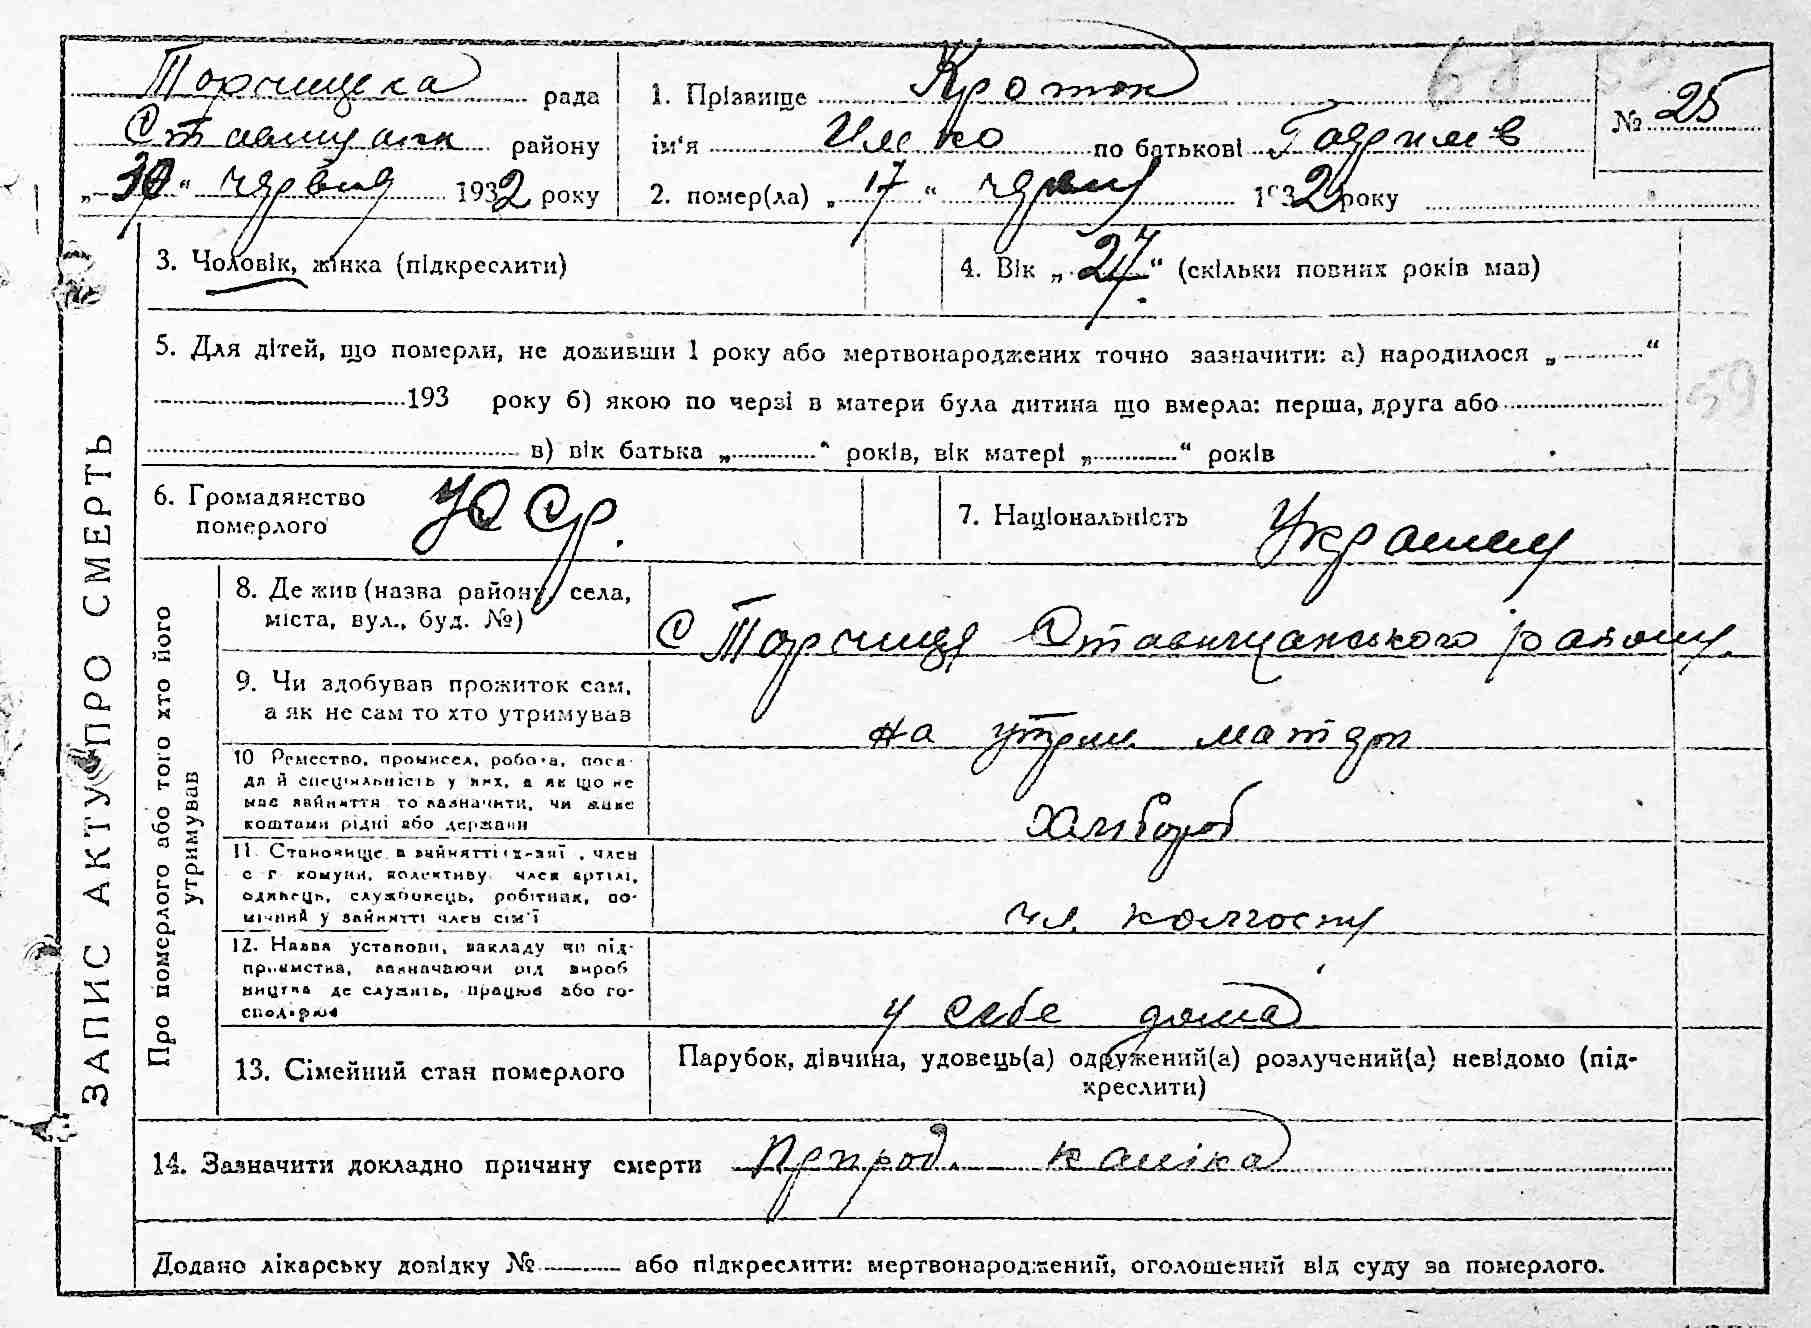 Торчицька рада
Ставищан. району
„30“ червня 1932 року
1. Прізвище Кроток
ім'я Илько по батькові Гаврилів
№ 25
2. помер(ла) „17“ червня 1932 року
ЗАПИС АКТУ ПРО СМЕРТЬ
3. Чоловік, жінка (підкреслити)
4. Вік „27“ (скільки повних років мав)
5. Для дітей, що померли, не доживши 1 року або мертвонароджених точно зазначити: а) народилося „ “
193 року б) якою по черзі в матери була дитина що вмерла: перша, друга або
в) вік батька „ “ років, вік матері „ “ років
59
6. Громадянство
померлого УСср.
7. Національність Українец
Про померлого або того хто його
утримував
8. Де жив (назва району, села,
міста, вул., буд. №)
с Торчиця Ставищанського району.
9. Чи здобував прожиток сам,
а як не сам то хто утримував
на утрим. матери
10 Ремество, промисел, робота, поса-
да й спеціяльність у них, а як що не
має зайняття то зазначити, чи живе
коштами рідні або держави
хлібороб
11. Становище в зайнятті: член
с г комуни, колективу член артілі,
одинець, службовець, робітник, по-
мічний у зайнятті член сім'ї
чл. колгоспу
12. Назва установи, закладу чи під-
приємства, зазначаючи рід вироб
ництва де служить, працює або го-
сподарює
у себе дома
13. Сімейний стан померлого
Парубок, дівчина, удовець(а) одружений(а) розлучений(а) невідомо (під-
креслити)
14. Зазначити докладно причину смерти природ. каліка
Додано лікарську довідку № або підкреслити: мертвонароджений, оголошений від суду за померлого.